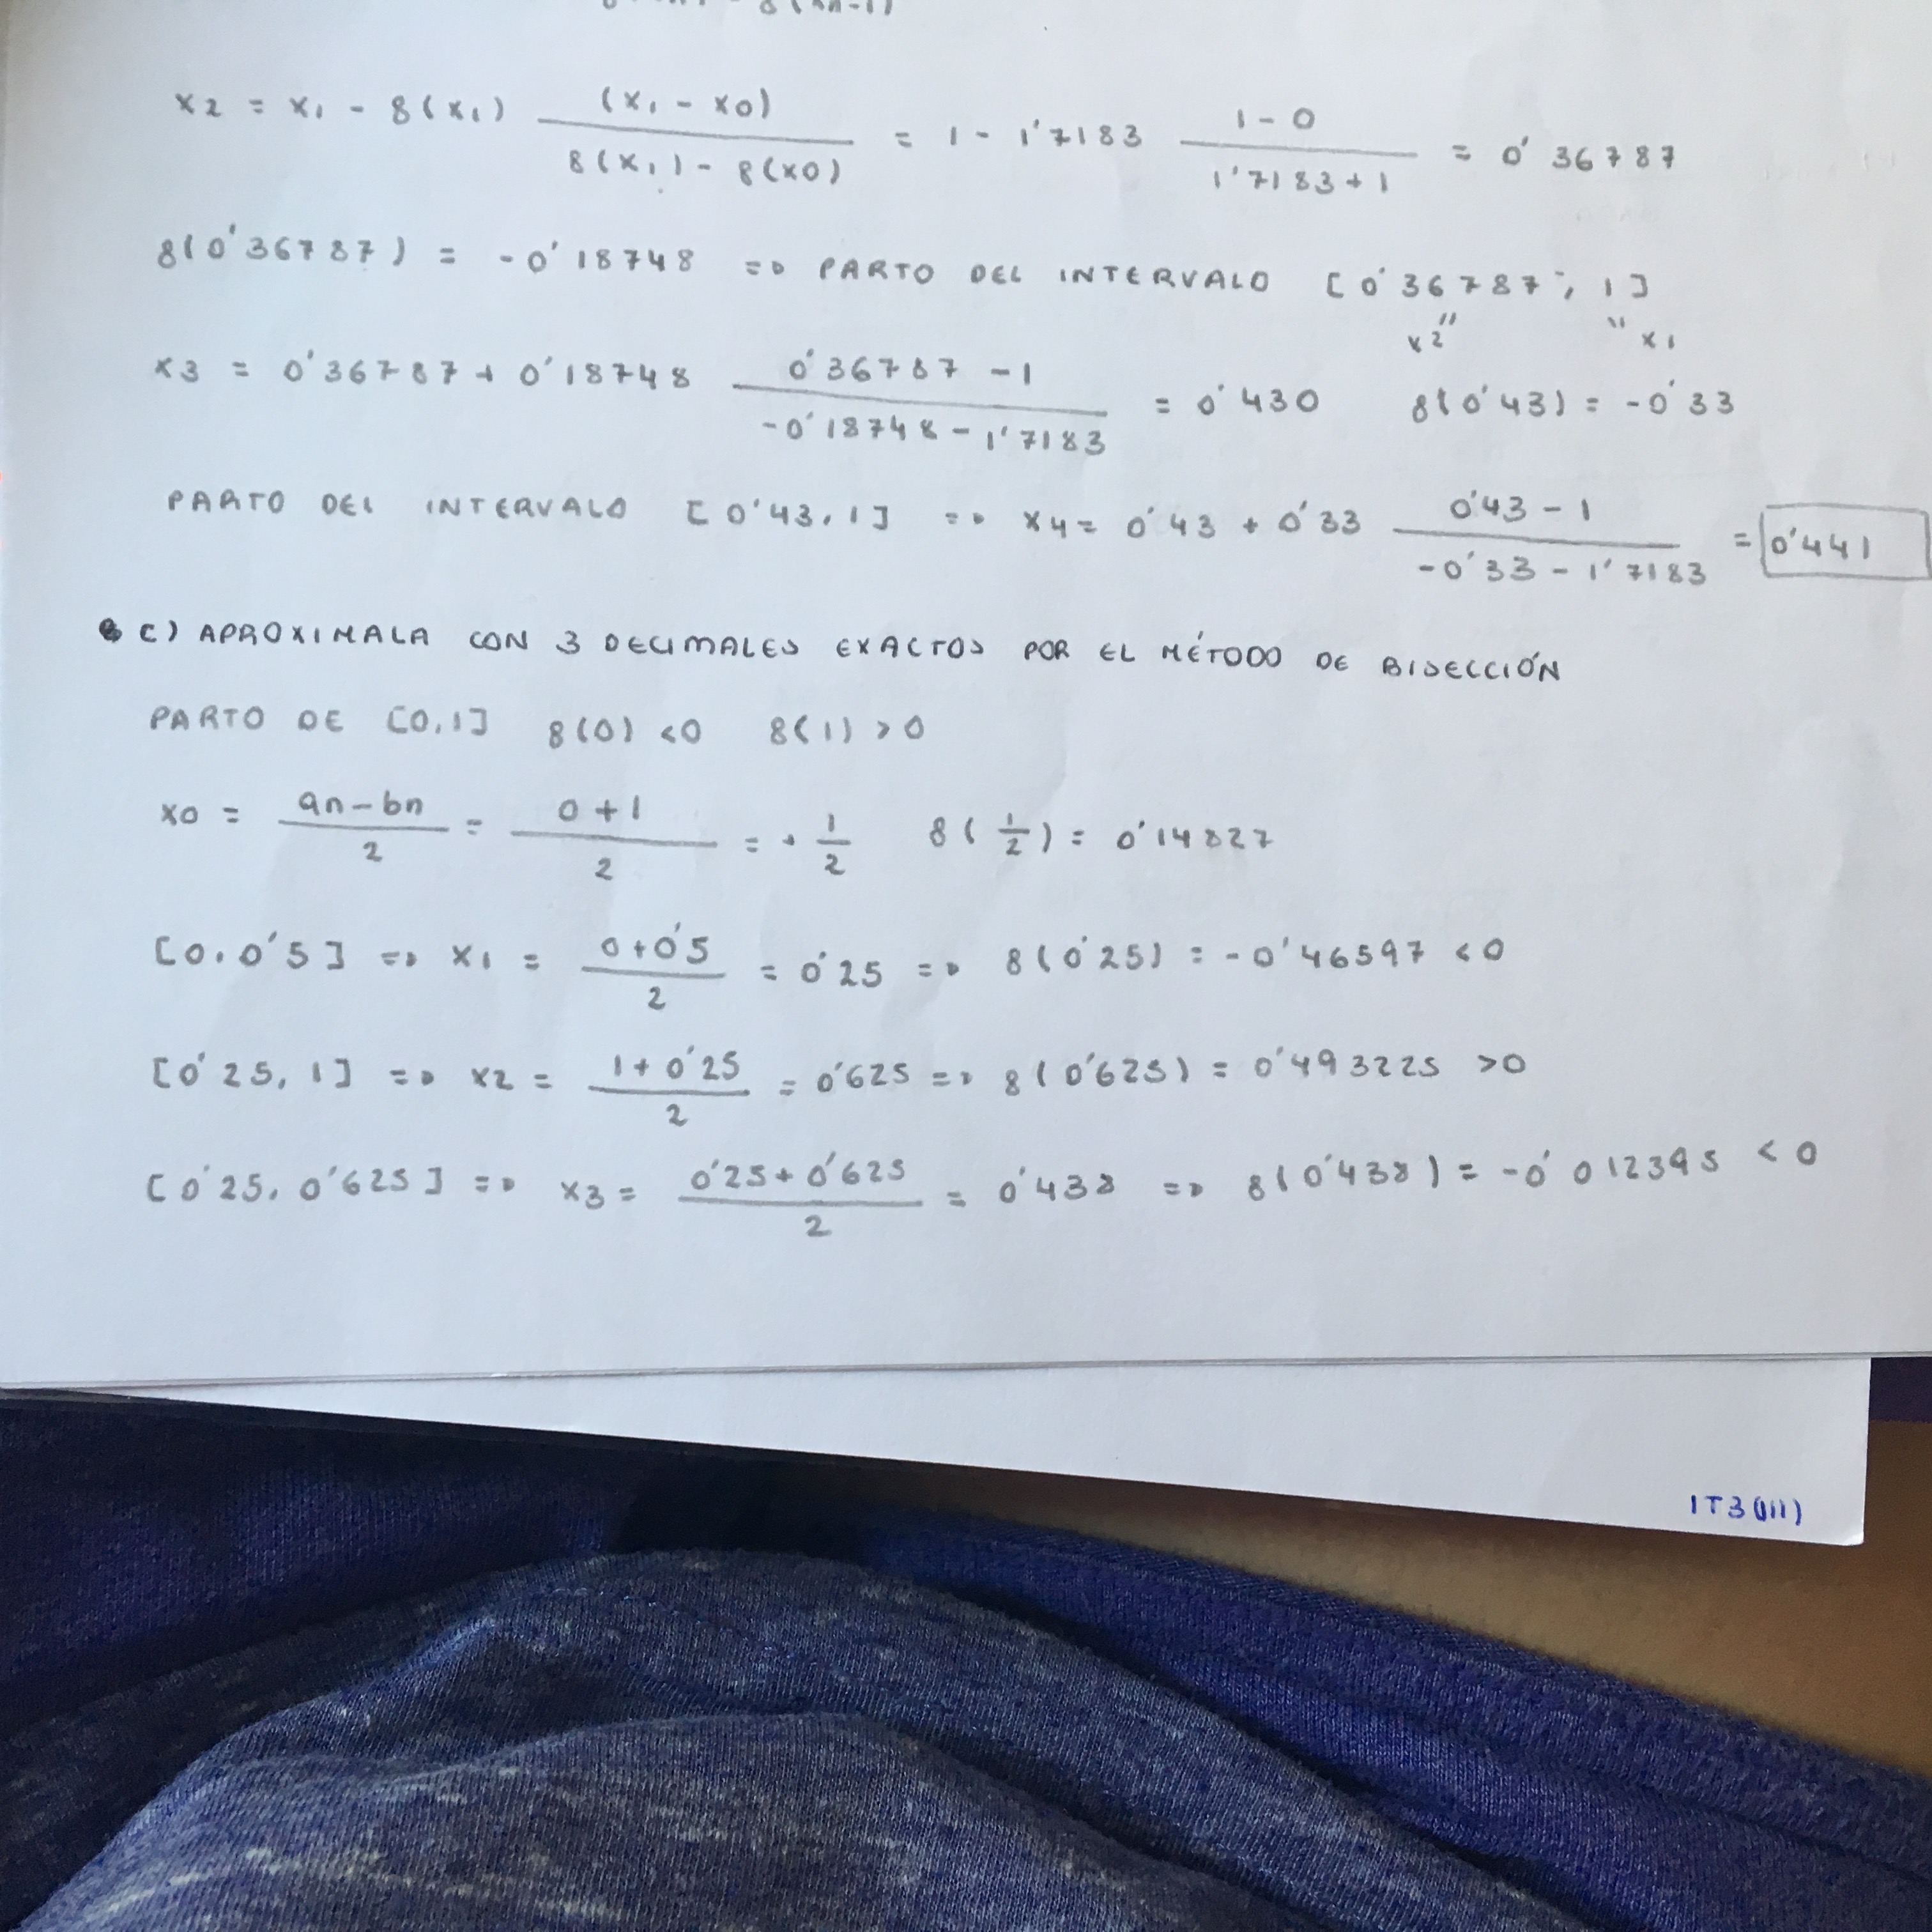 x2 = x1 - 8(x1) (x1 - x0) / 8(x1) - 8(x0) = 1 - 1'7183 1 - 0 / 1'7183 + 1 = 0'36787
8(0'36787) = -0'18748 => PARTO DEL INTERVALO [0'36787, 1]
x2" " x1
x3 = 0'36787 + 0'18748 0'36787 - 1 / -0'18748 - 1'7183 = 0'430 8(0'43) = -0'33
PARTO DEL INTERVALO [0'43, 1] => x4 = 0'43 + 0'33 0'43 - 1 / -0'33 - 1'7183 = 0'441
C) APROXIMALA CON 3 DECIMALES EXACTOS POR EL MÉTODO DE BISECCIÓN
PARTO DE [0,1] 8(0) <0 8(1) >0
x0 = an - bn / 2 = 0 + 1 / 2 = + 1/2 8(1/2) = 0'14827
[0, 0'5] => x1 = 0 + 0'5 / 2 = 0'25 => 8(0'25) = -0'46597 <0
[0'25, 1] => x2 = 1 + 0'25 / 2 = 0'625 => 8(0'625) = 0'493225 >0
[0'25, 0'625] => x3 = 0'25 + 0'625 / 2 = 0'438 => 8(0'438) = -0'012395 <0
1T3(III)